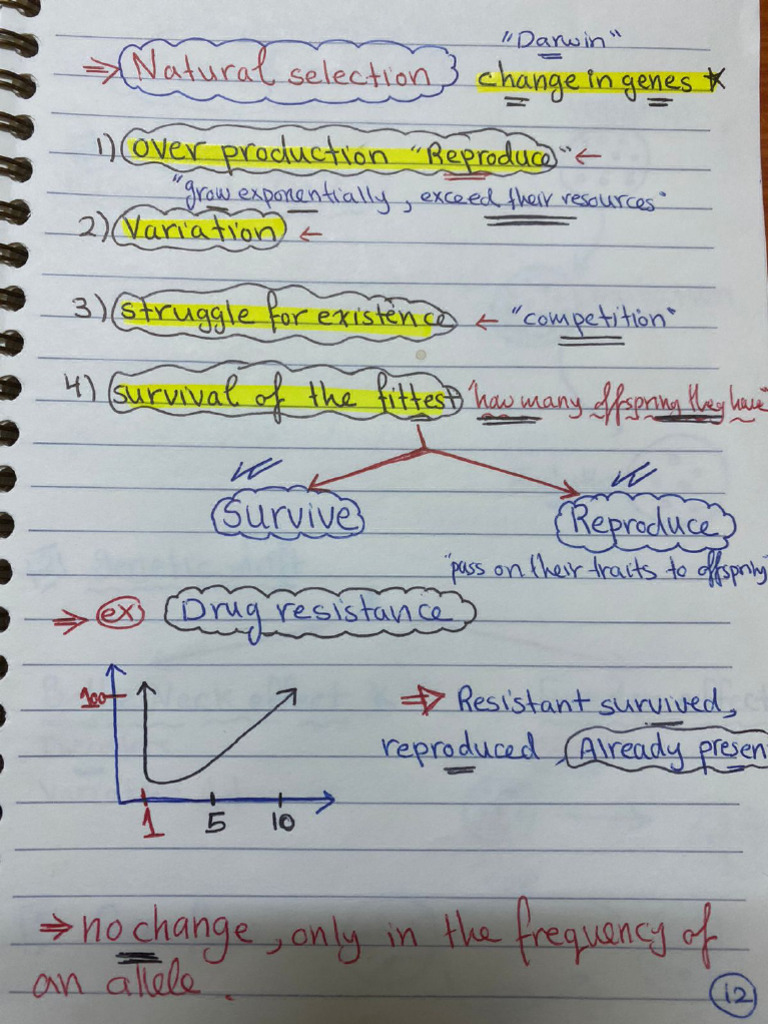 "Darwin"
⇒ Natural selection change in genes ★
1) over production "Reproduce" ←
"grow exponentially, exceed their resources"
2) Variation ←
3) struggle for existence ← "competition"
4) survival of the fittest "how many offspring they have"
Survive Reproduce
"pass on their traits to offspring"
⇒ ex Drug resistance
100 ⇒ Resistant survived,
reproduced, Already presen
1 5 10
⇒ no change, only in the frequency of
an allele.
12